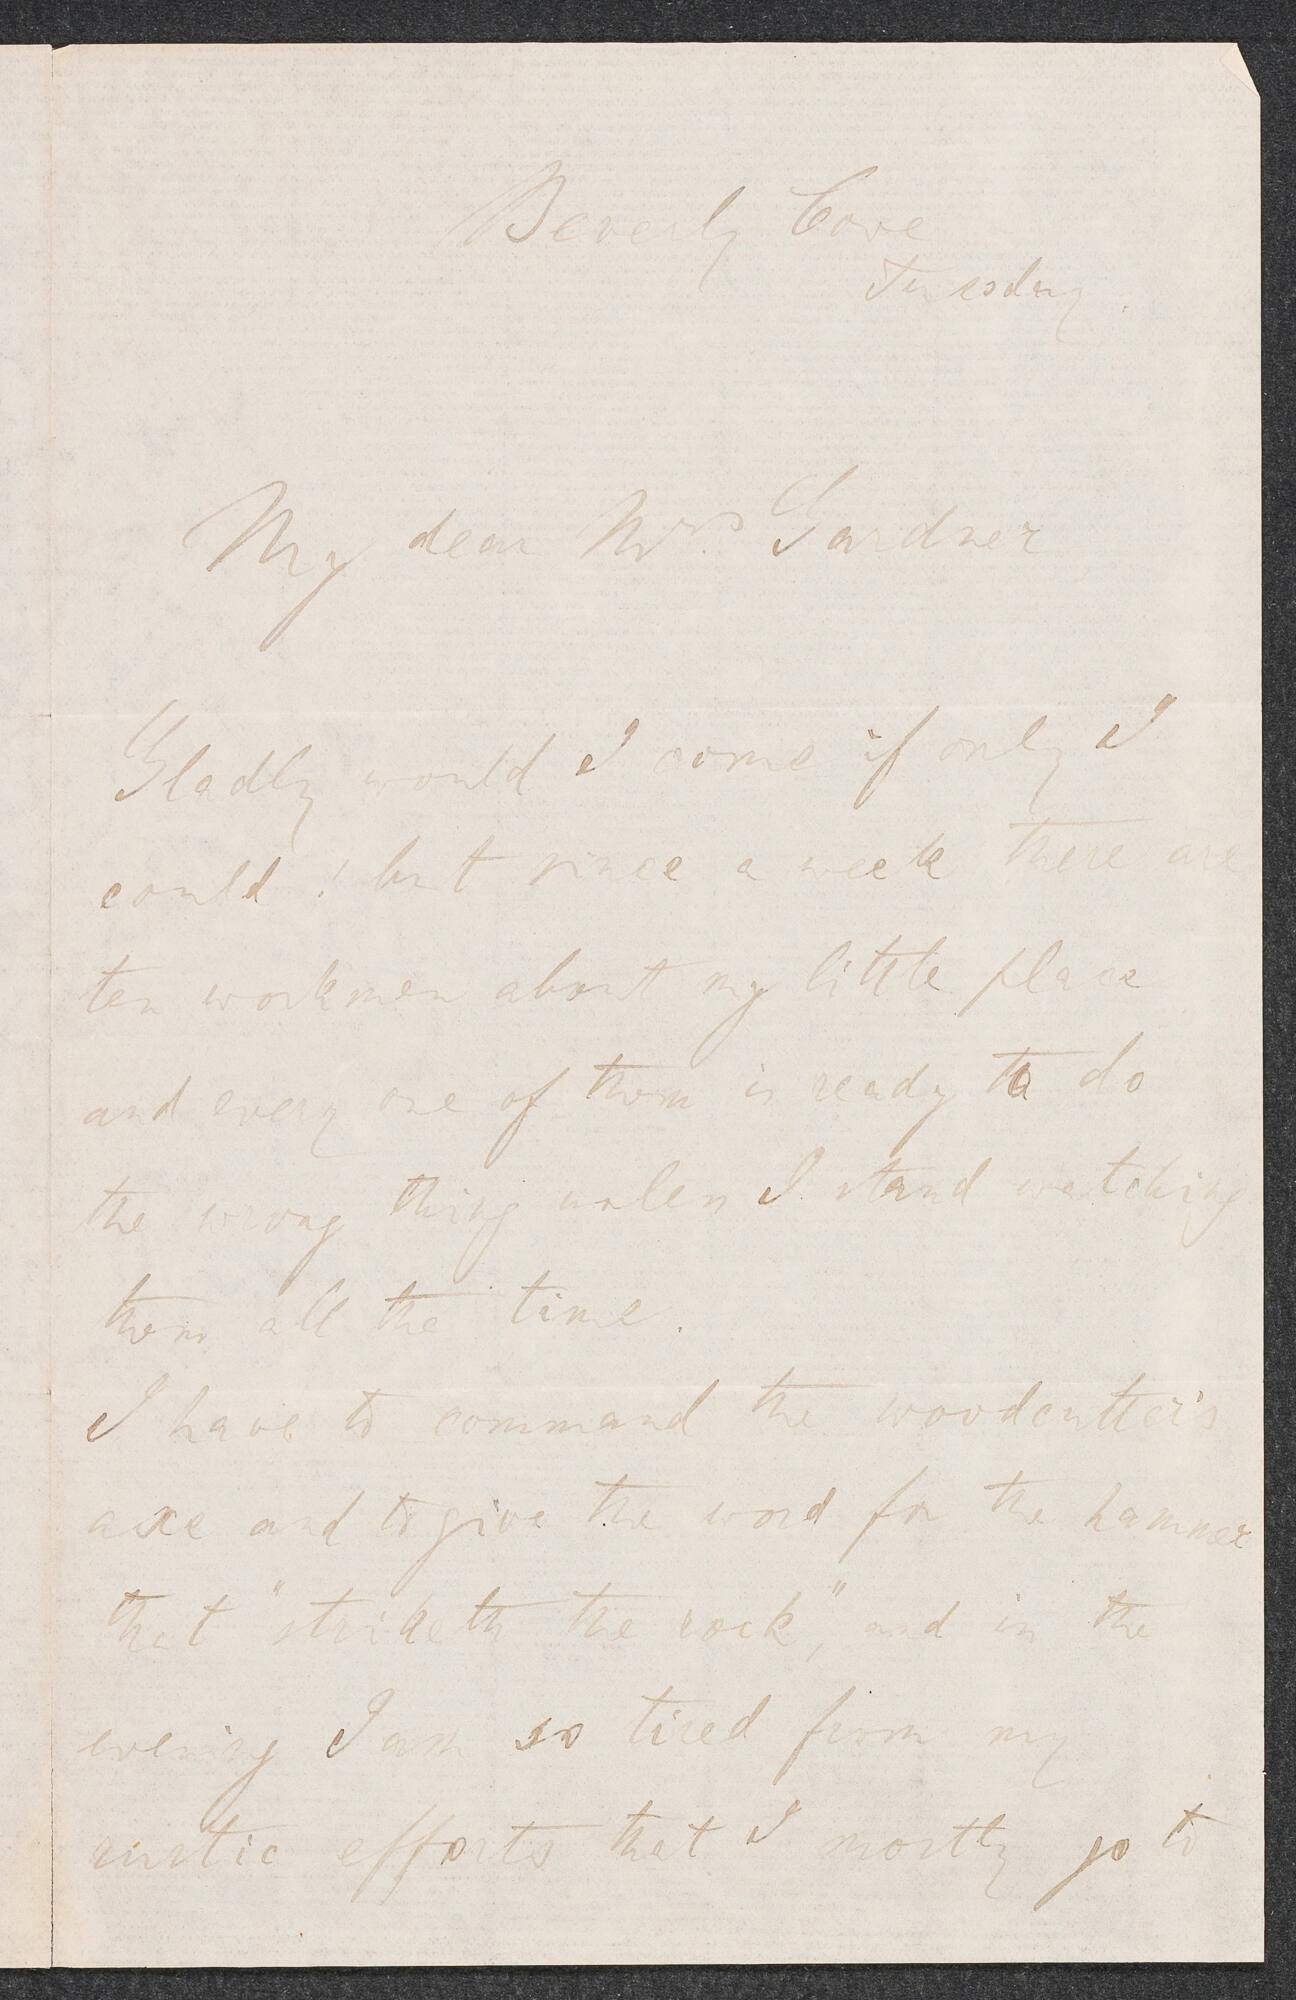 Beverly Cove
Tuesday.
My dear Mrs. Gardner
Gladly would I come if only I
could! but since a week there are
ten workmen about my little place
and every one of them is ready to do
the wrong thing unless I stand watching
them all the time.
I have to command the woodcutter's
axe and to give the word for the hammer
that "striketh the rock", and in the
evening I am so tired from my
rustic efforts that I mostly go to